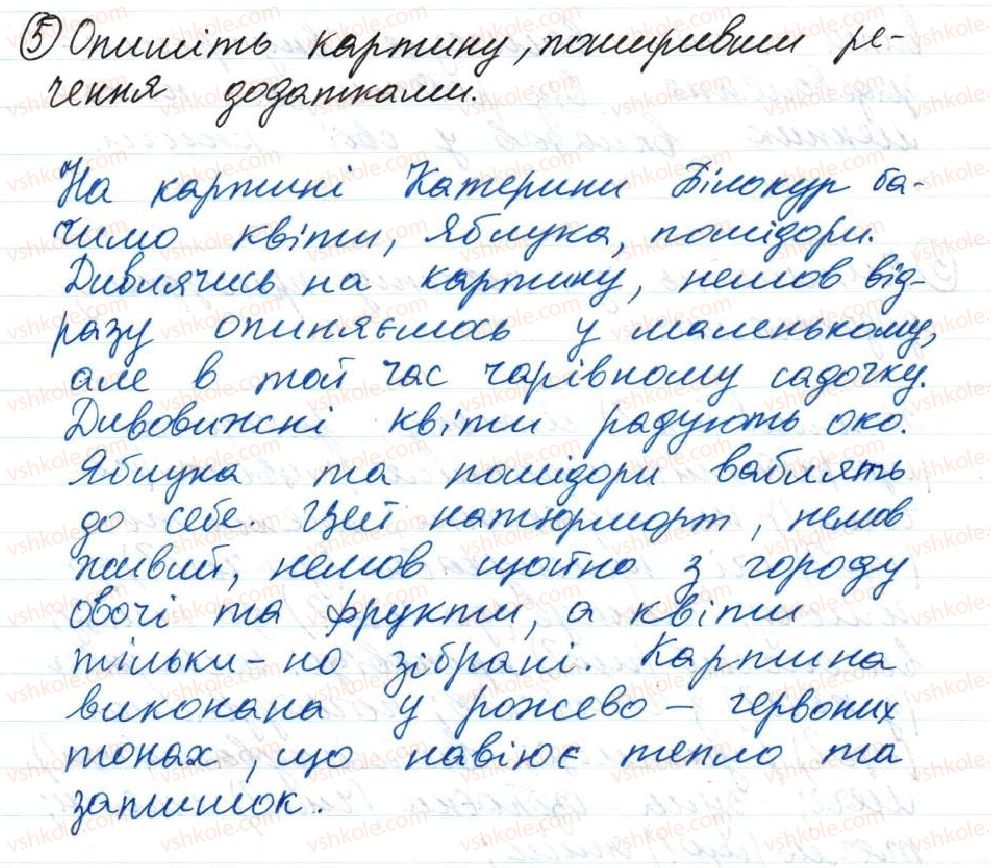 5 Опишіть картину, поширивши ре-
чення додатками.
На картині Катерини Білокур ба-
чимо квіти, яблука, помідори.
Дивлячись на картину, немов від-
разу опиняємось у маленькому,
але в той час чарівному садочку.
Дивовижні квіти радують око.
Яблука та помідори ваблять
до себе. Цей натюрморт, немов
живий, немов щойно з городу
овочі та фрукти, а квіти
тільки-но зібрані. Картина
виконана у рожево - червоних
тонах, що навіює тепло та
затишок.